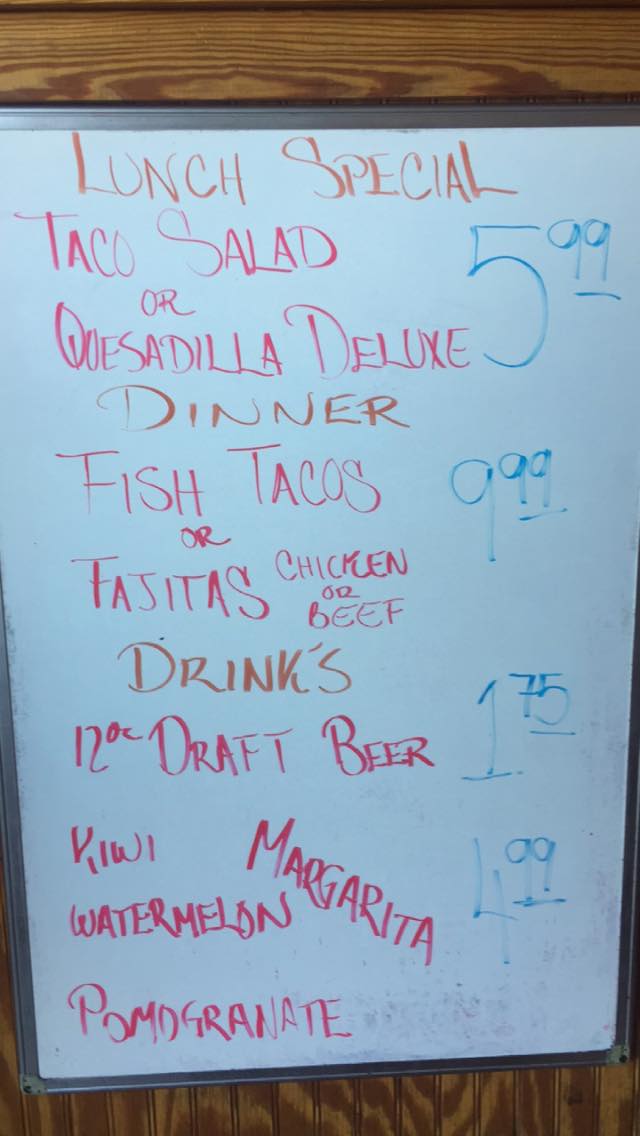 LUNCH SPECIAL
TACO SALAD 5.99
OR
QUESADILLA DELUXE
DINNER
FISH TACOS 9.99
OR
FAJITAS CHICKEN
OR
BEEF
DRINK'S
12oz DRAFT BEER 1.75
KIWI MARGARITA 4.99
WATERMELON
POMOGRANATE